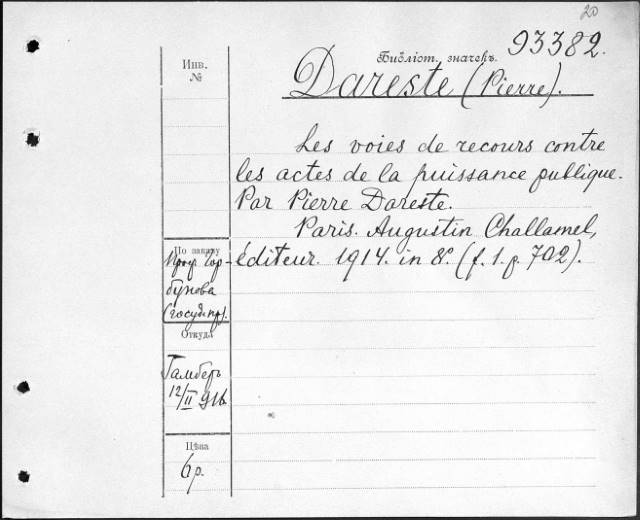 20
93382.
Инв.
№
Библіот. значекъ.
Dareste (Pierre).
Les voies de recours contre
les actes de la puissance publique.
Par Pierre Dareste.
Paris. Augustin Challamel,
éditeur. 1914. in 8°. (f. 1. p. 702).
По заказу
Проф. Гор-
бунова
(госуд. пр.).
Откуда
Гамберъ
12/II 916
Цѣна
6 р.